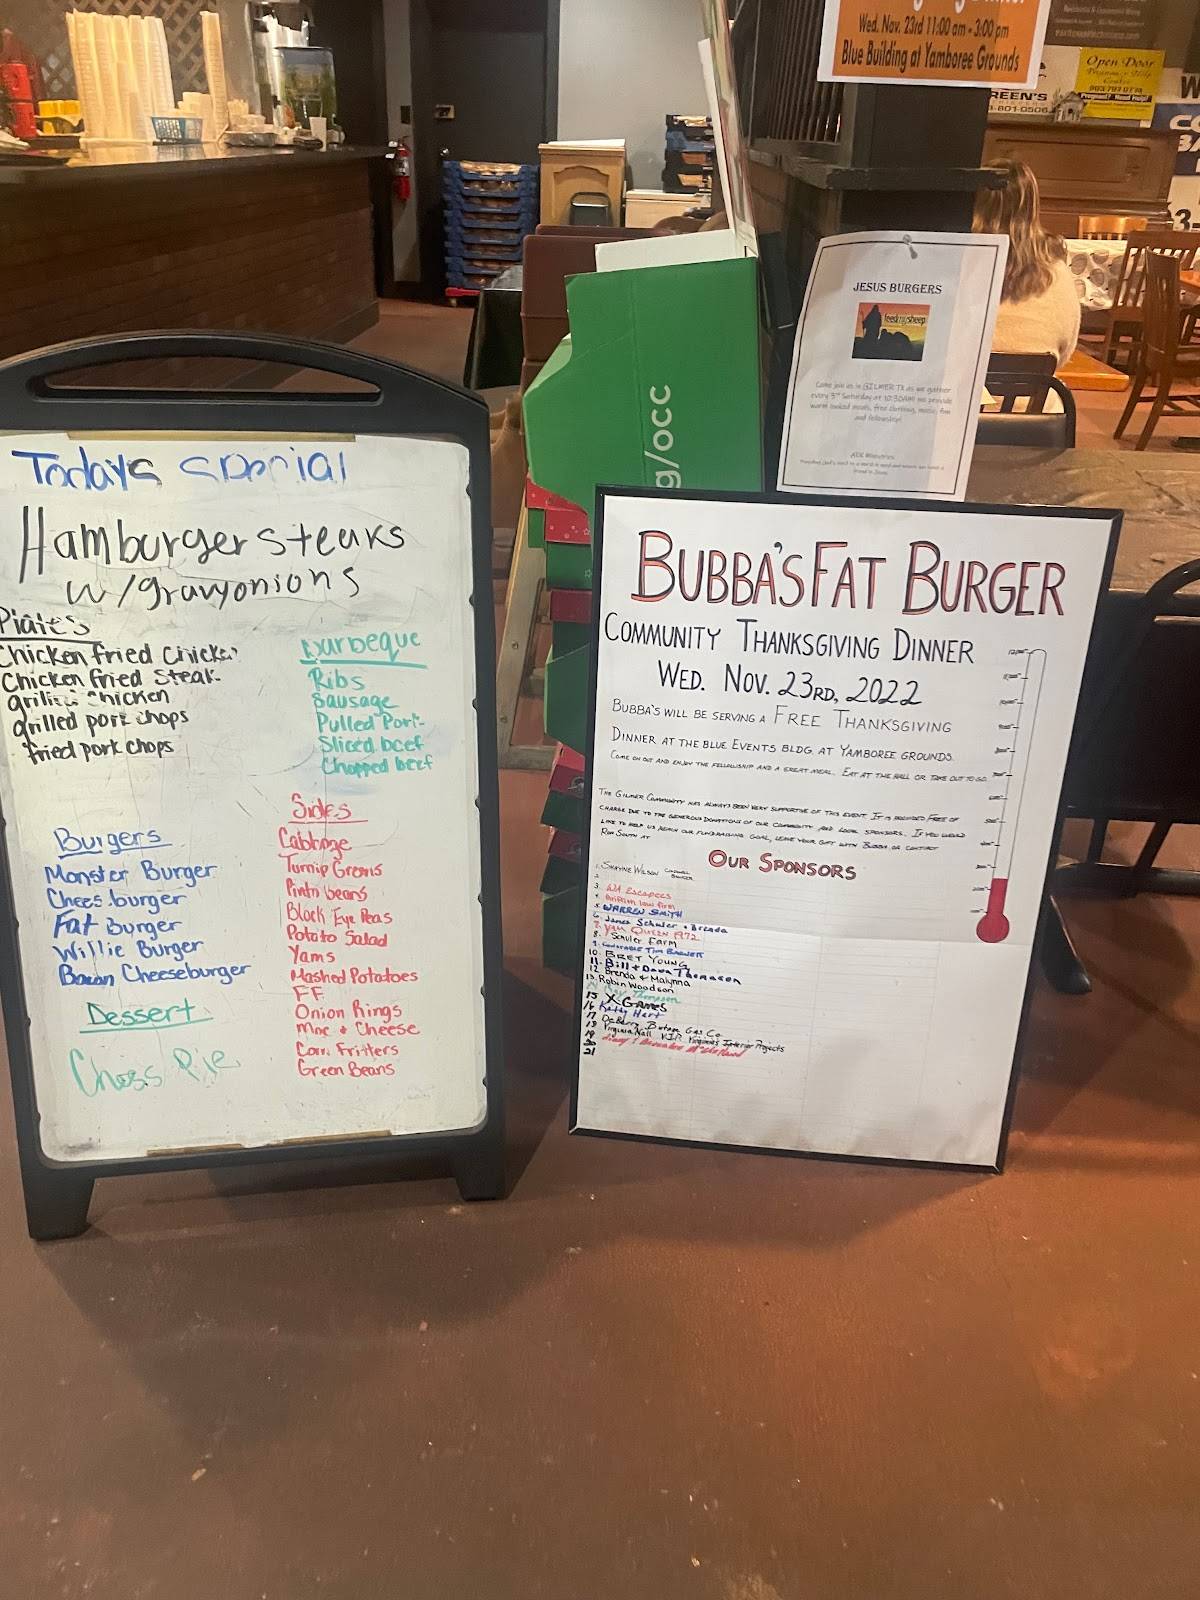 Wed. Nov. 23rd 11:00 am - 3:00 pm
Blue Building at Yamboree Grounds
Open Door
903 797 0774
Pregnant? Need Help?
REEN'S
801-0506
g/occ
JESUS BURGERS
feedmysheep
Come join us in GILMER TX as we gather
every 3rd Saturday at 10:30AM we provide
warm cooked meals, free clothing, music, fun
and fellowship!
Todays special
Hamburger steaks
w/gravyonions
Plates
Chicken fried Chicken
Chicken fried Steak
grilled chicken
grilled pork chops
fried pork chops
Barbeque
Ribs
Sausage
Pulled Pork
Sliced beef
Chopped beef
Burgers
Monster Burger
Cheeseburger
Fat Burger
Willie Burger
Bacon Cheeseburger
Dessert
Chess Pie
Sides
Cabbage
Turnip Greens
Pinto beans
Black Eye Peas
Potato Salad
Yams
Mashed Potatoes
FF
Onion Rings
Mac & Cheese
Corn Fritters
Green Beans
BUBBA'S FAT BURGER
COMMUNITY THANKSGIVING DINNER
WED. NOV. 23RD, 2022
BUBBA'S WILL BE SERVING A FREE THANKSGIVING
DINNER AT THE BLUE EVENTS BLDG. AT YAMBOREE GROUNDS.
COME ON OUT AND ENJOY THE FELLOWSHIP AND A GREAT MEAL. EAT AT THE HALL OR TAKE OUT TO GO.
THE GILMER COMMUNITY HAS ALWAYS BEEN VERY SUPPORTIVE OF THIS EVENT. IT IS PROVIDED FREE OF
CHARGE DUE TO THE GENEROUS DONATIONS OF OUR COMMUNITY AND LOCAL SPONSORS. IF YOU WOULD
LIKE TO HELP US REACH OUR FUNDRAISING GOAL, LEAVE YOUR GIFT WITH BUBBA OR CONTACT
RON SOUTH AT
OUR SPONSORS
1. SHAYNE WILSON COLDWELL BANKER
2.
3. WA Escapees
4. Griffith law firm
5. WARREN SMITH
6. James Schuler & Brenda
7. YAM QUEEN 1972
8. Schuler Farm
9. Constable Tim Barnett
10 BRET YOUNG
11. Bill + Dana Thomason
12 Brenda & Malynna
13. Robin Woodson
14 Thompson
15 X-GAMES
16 Kathy Hart
17 DeBerry Butane Gas Co
18 Virginia Hall V.I.P. Virginia's Interior Projects
19
20
21